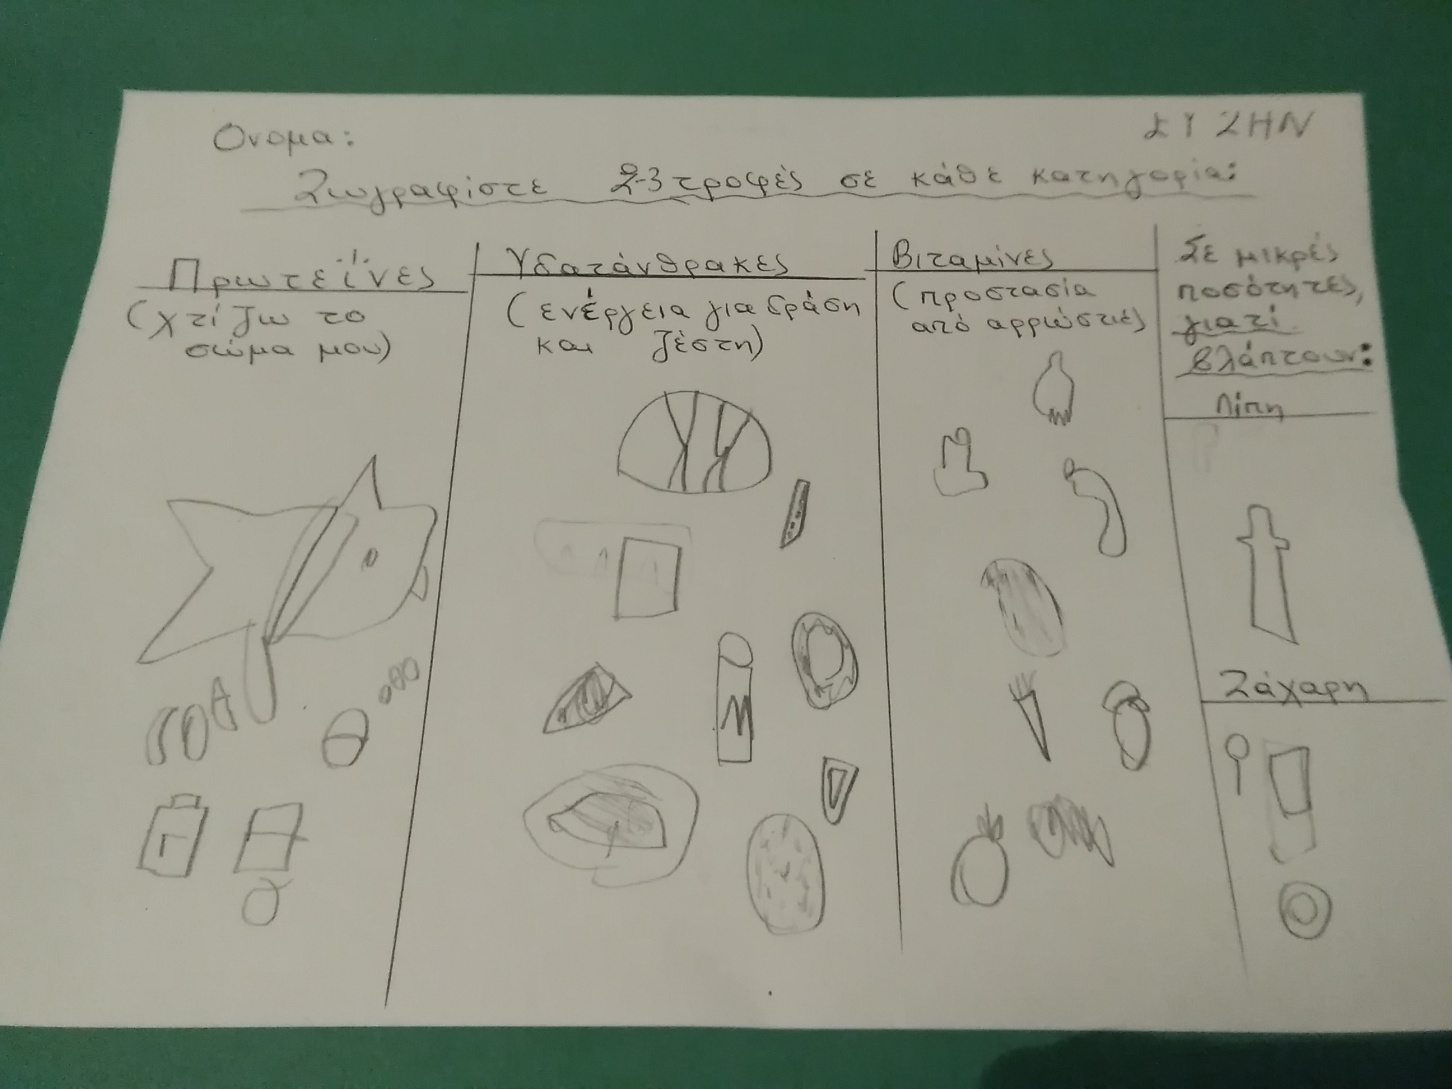 Ονομα:
ΣΥΖΗΝ
Ζωγραφίστε 2-3 τροφές σε κάθε κατηγορία:
Πρωτεΐνες
(χτίζω το
σώμα μου)
Υδατάνθρακες
(ενέργεια για δράση
και ζέστη)
Βιταμίνες
(προστασία
από αρρώστιες)
Σε μικρές
ποσότητες,
γιατί
βλάπτουν:
Λίπη
Ζάχαρη